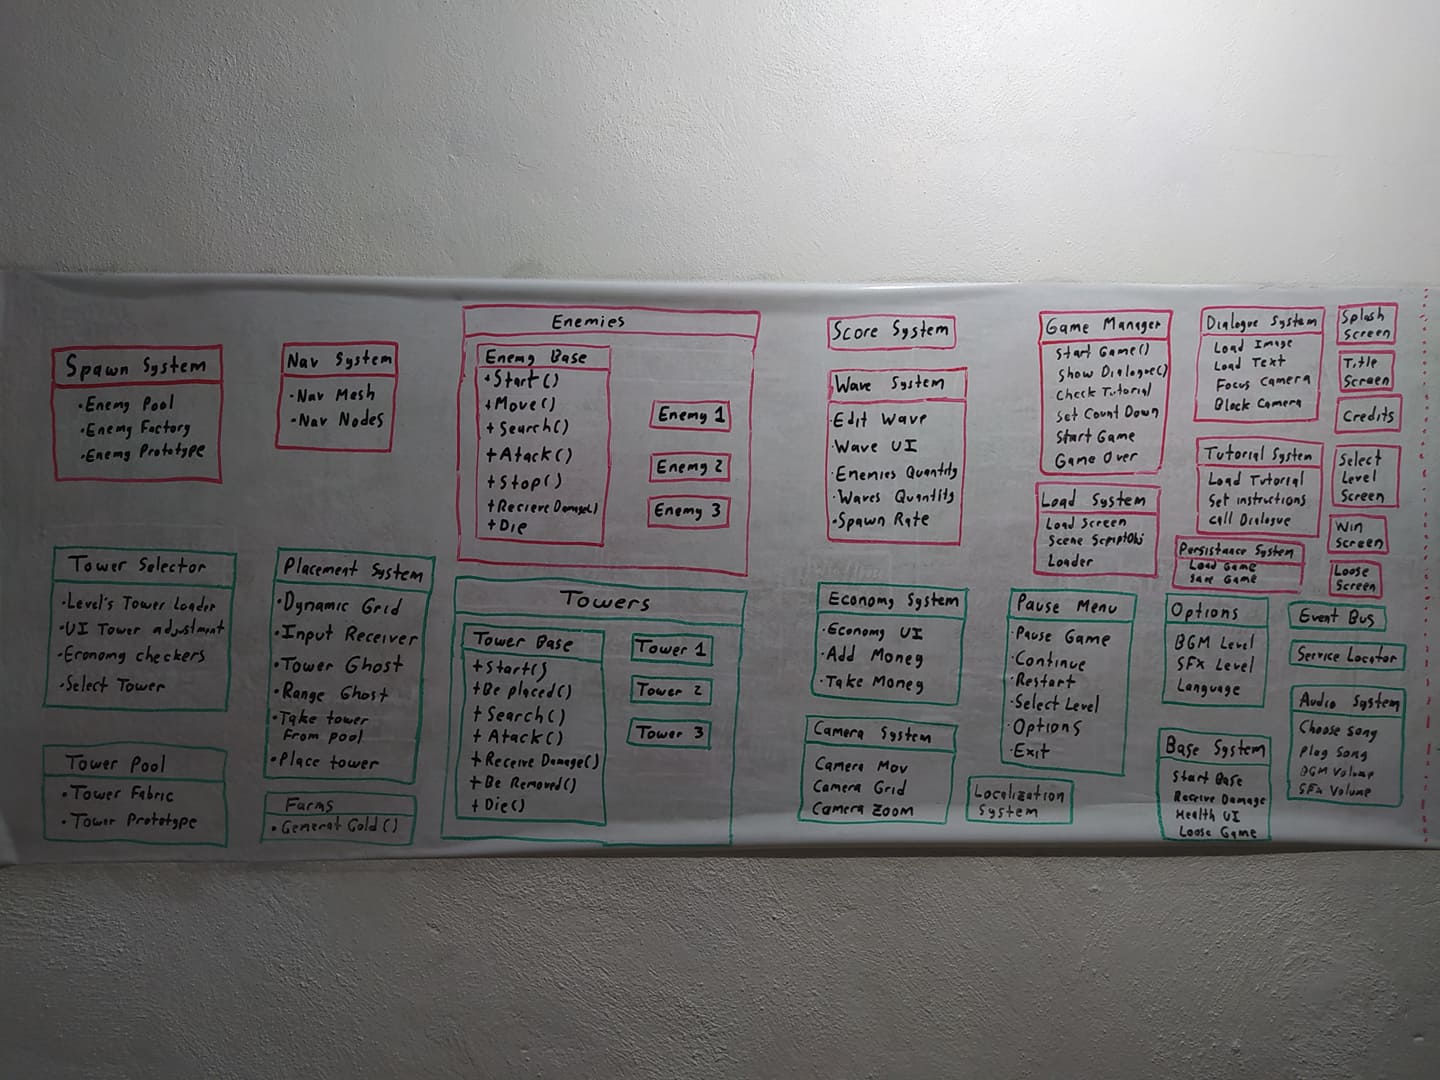 Spawn System
·Enemy Pool
·Enemy Factory
·Enemy Prototype
Nav System
·Nav Mesh
·Nav Nodes
Enemies
Enemy Base
+Start()
+Move()
+Search()
+Atack()
+Stop()
+Recieve Damage()
+Die
Enemy 1
Enemy 2
Enemy 3
Score System
Wave System
·Edit Wave
·Wave UI
·Enemies Quantity
·Waves Quantity
·Spawn Rate
Game Manager
Start Game()
Show Dialogue()
Check Tutorial
Set Count Down
Start Game
Game Over
Load System
Load Screen
Scene ScriptObj
Loader
Dialogue System
Load Image
Load Text
Focus Camera
Block Camera
Tutorial System
Load Tutorial
Set instructions
Call Dialogue
Persistance System
Load Game
Save Game
Splash
Screen
Title
Screen
Credits
Select
Level
Screen
Win
Screen
Loose
Screen
Tower Selector
·Level's Tower Loader
·UI Tower adjustment
·Economy checkers
·Select Tower
Tower Pool
·Tower Fabric
·Tower Prototype
Placement System
·Dynamic Grid
·Input Receiver
·Tower Ghost
·Range Ghost
·Take tower
From pool
·Place tower
Farms
·Generat Gold()
Towers
Tower Base
+Start()
+Be placed()
+Search()
+Atack()
+Receive Damage()
+Be Removed()
+Die()
Tower 1
Tower 2
Tower 3
Economy System
·Economy UI
·Add Money
·Take Money
Camera System
Camera Mov
Camera Grid
Camera Zoom
Pause Menu
·Pause Game
·Continue
·Restart
·Select Level
·Options
·Exit
Localization
System
Options
BGM Level
SFX Level
Language
Base System
Start Base
Receive Damage
Health UI
Loose Game
Event Bus
Service Locator
Audio System
Choose Song
Play Song
BGM Volume
SFX Volume